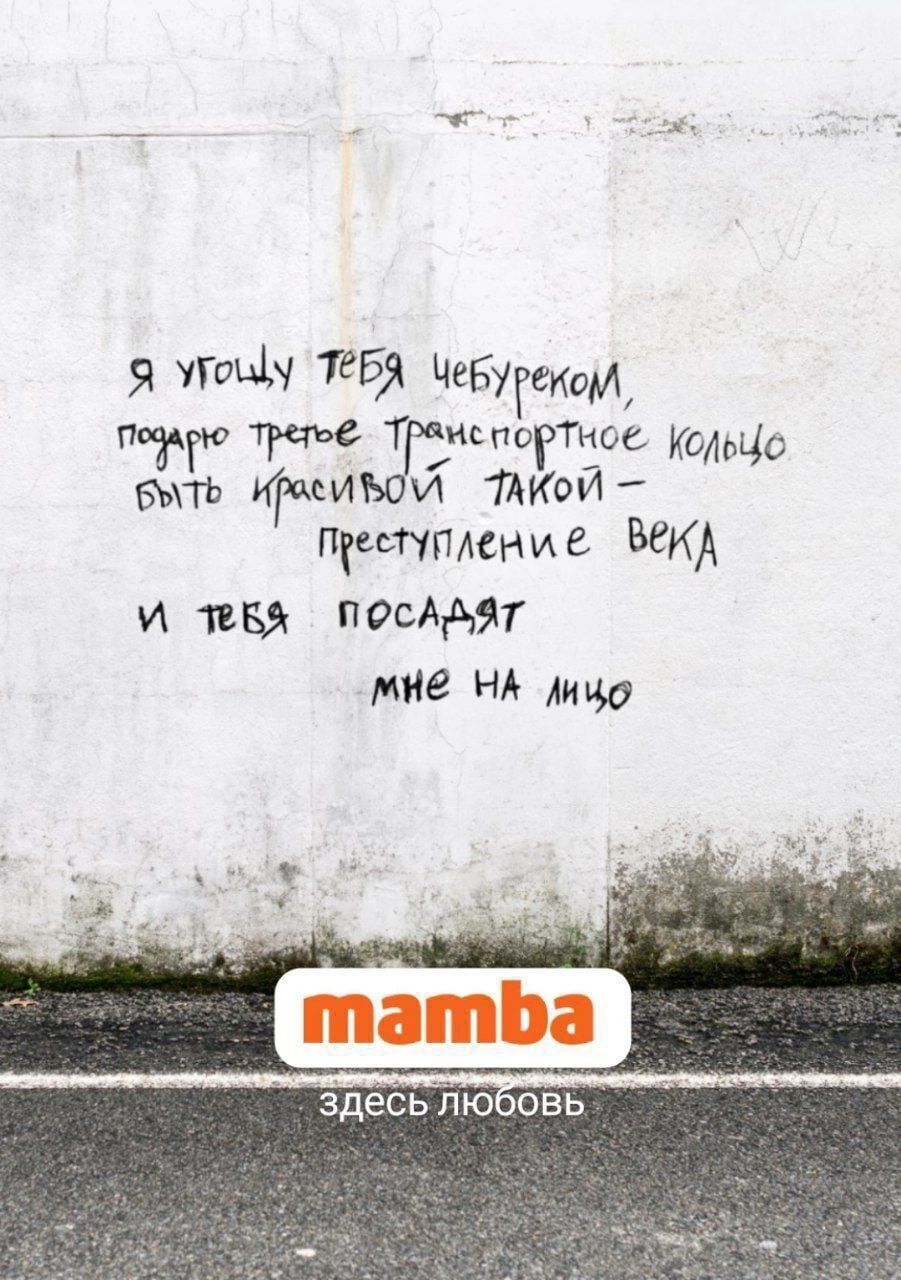 я угощу тебя чебуреком,
подарю третье транспортное кольцо
быть красивой такой –
преступление века
и тебя посадят
мне на лицо
mamba
здесь любовь